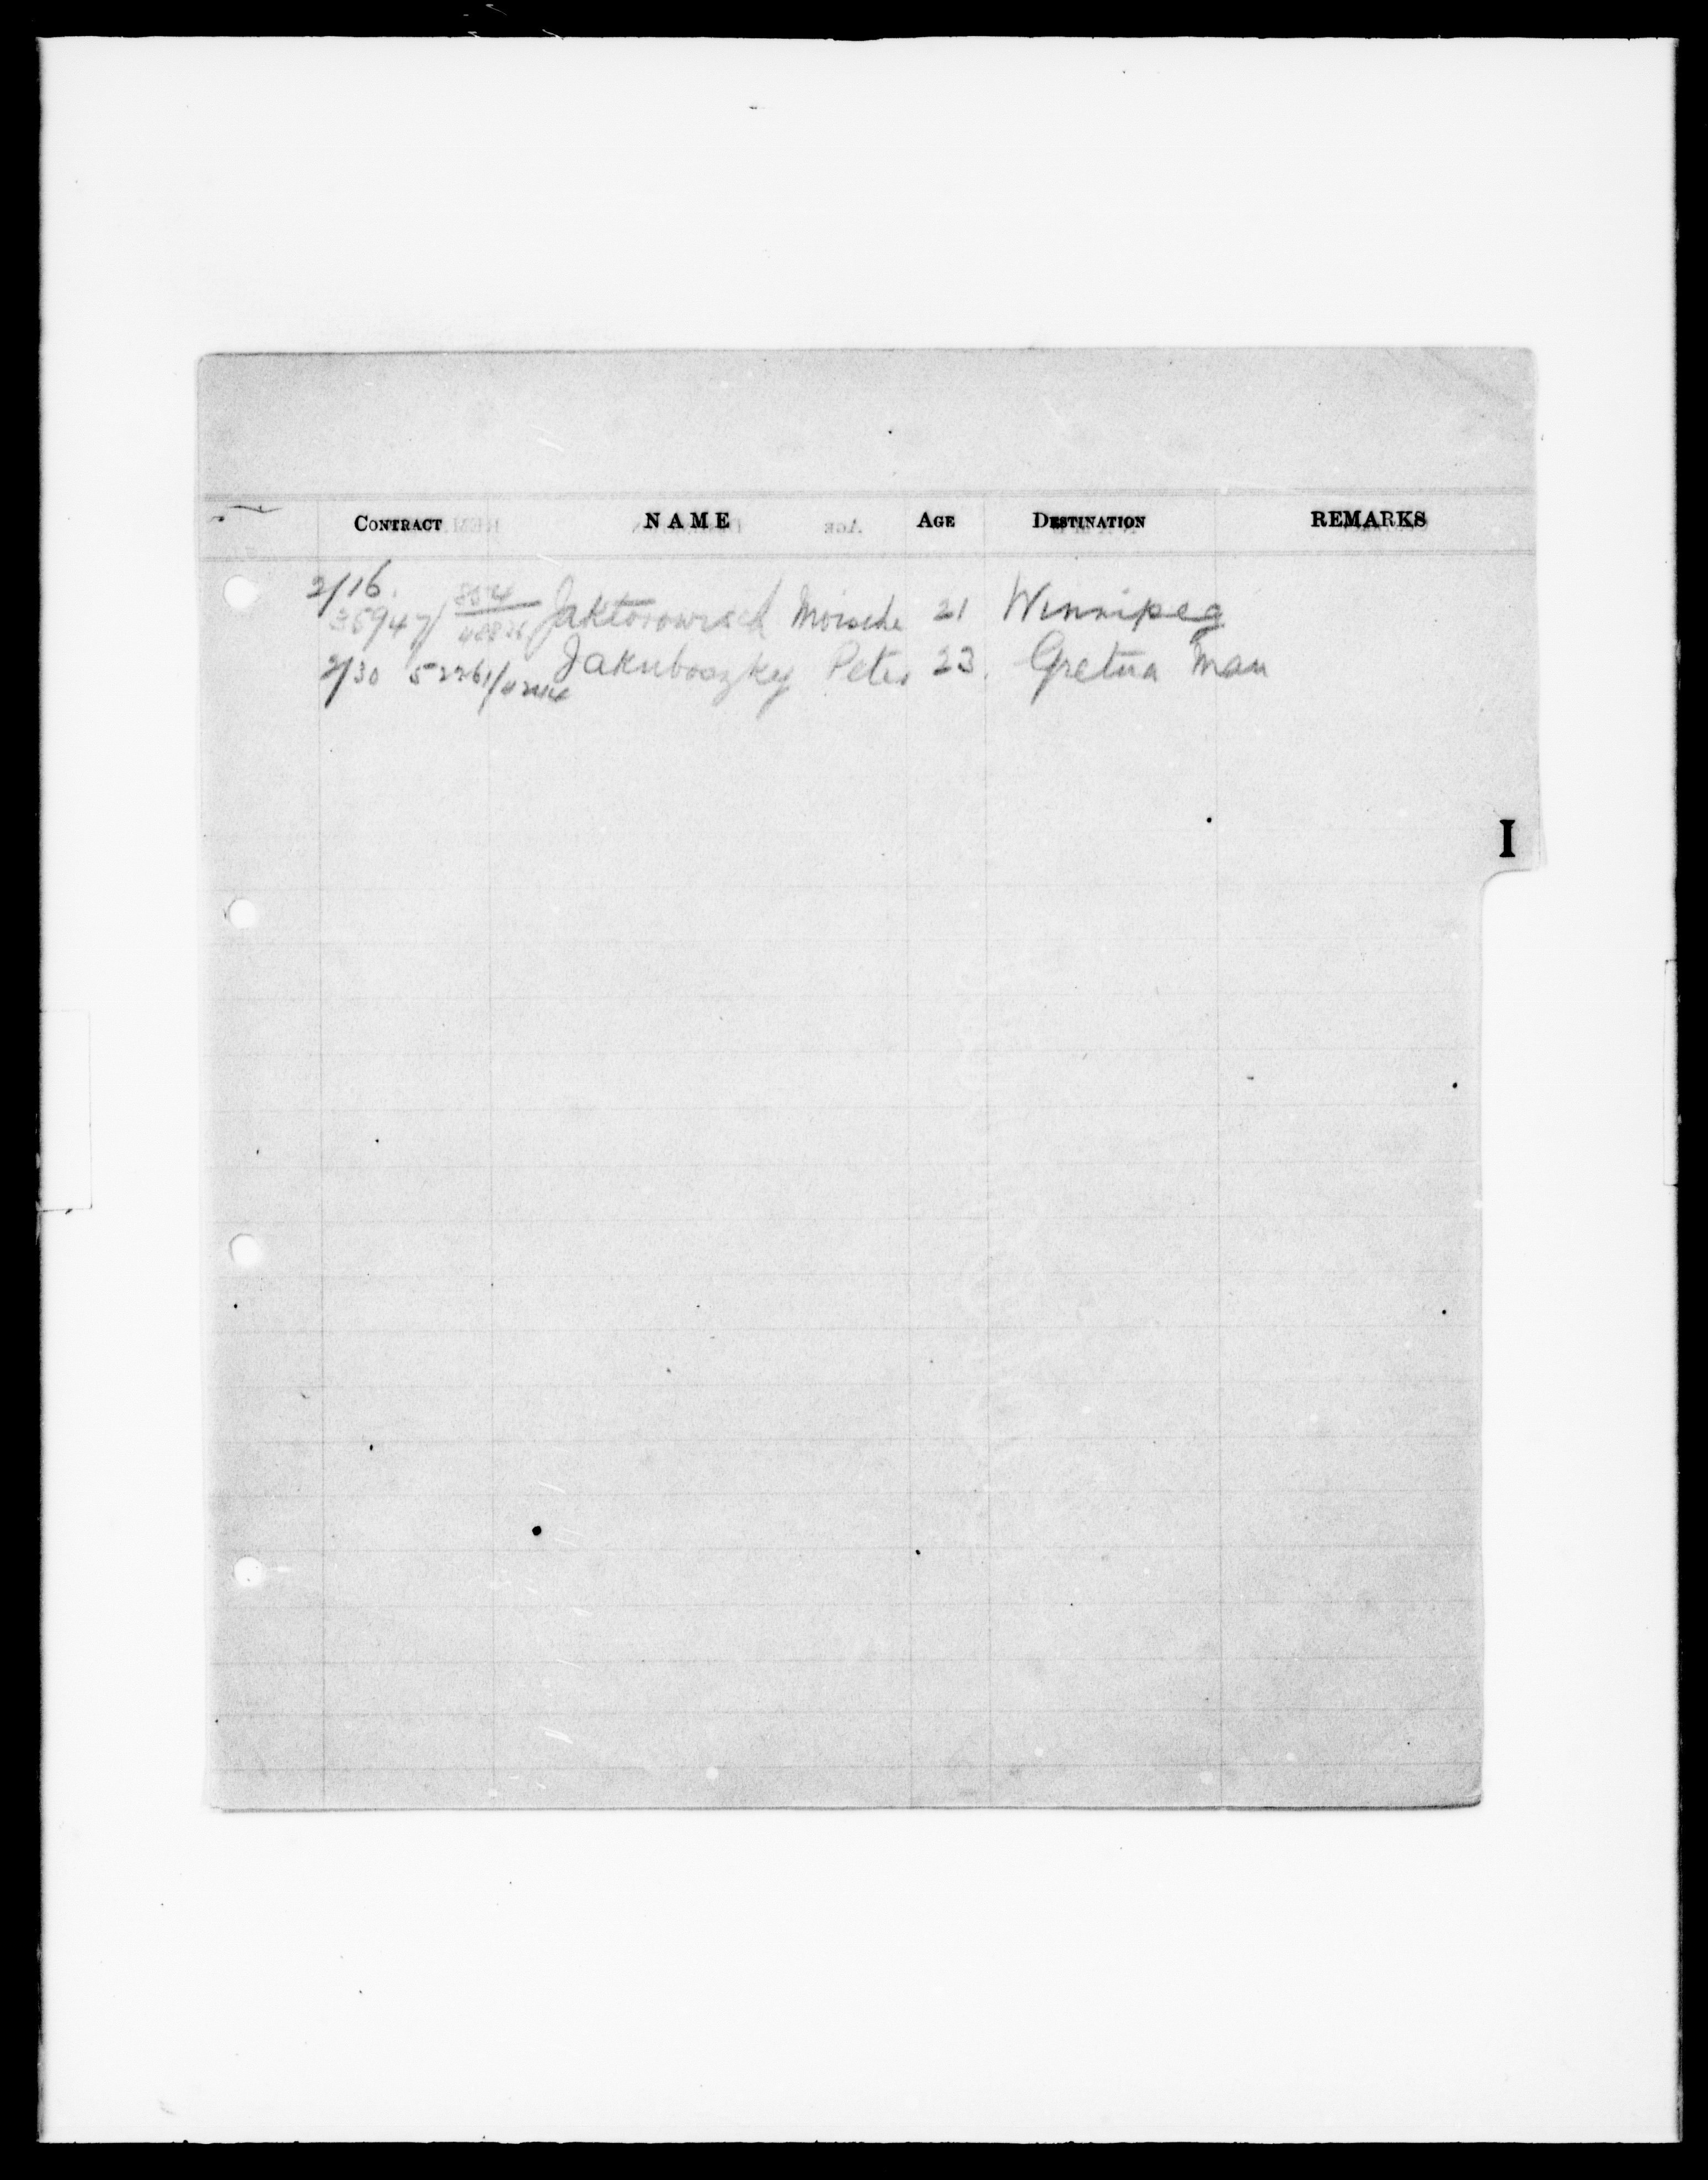 CONTRACT NAME AGE DESTINATION REMARKS
2/16.
Jaktorowisch Moische 21 Winnipeg
2/30 52261/ Jakuboozky Peter 23. Gretna Man
I